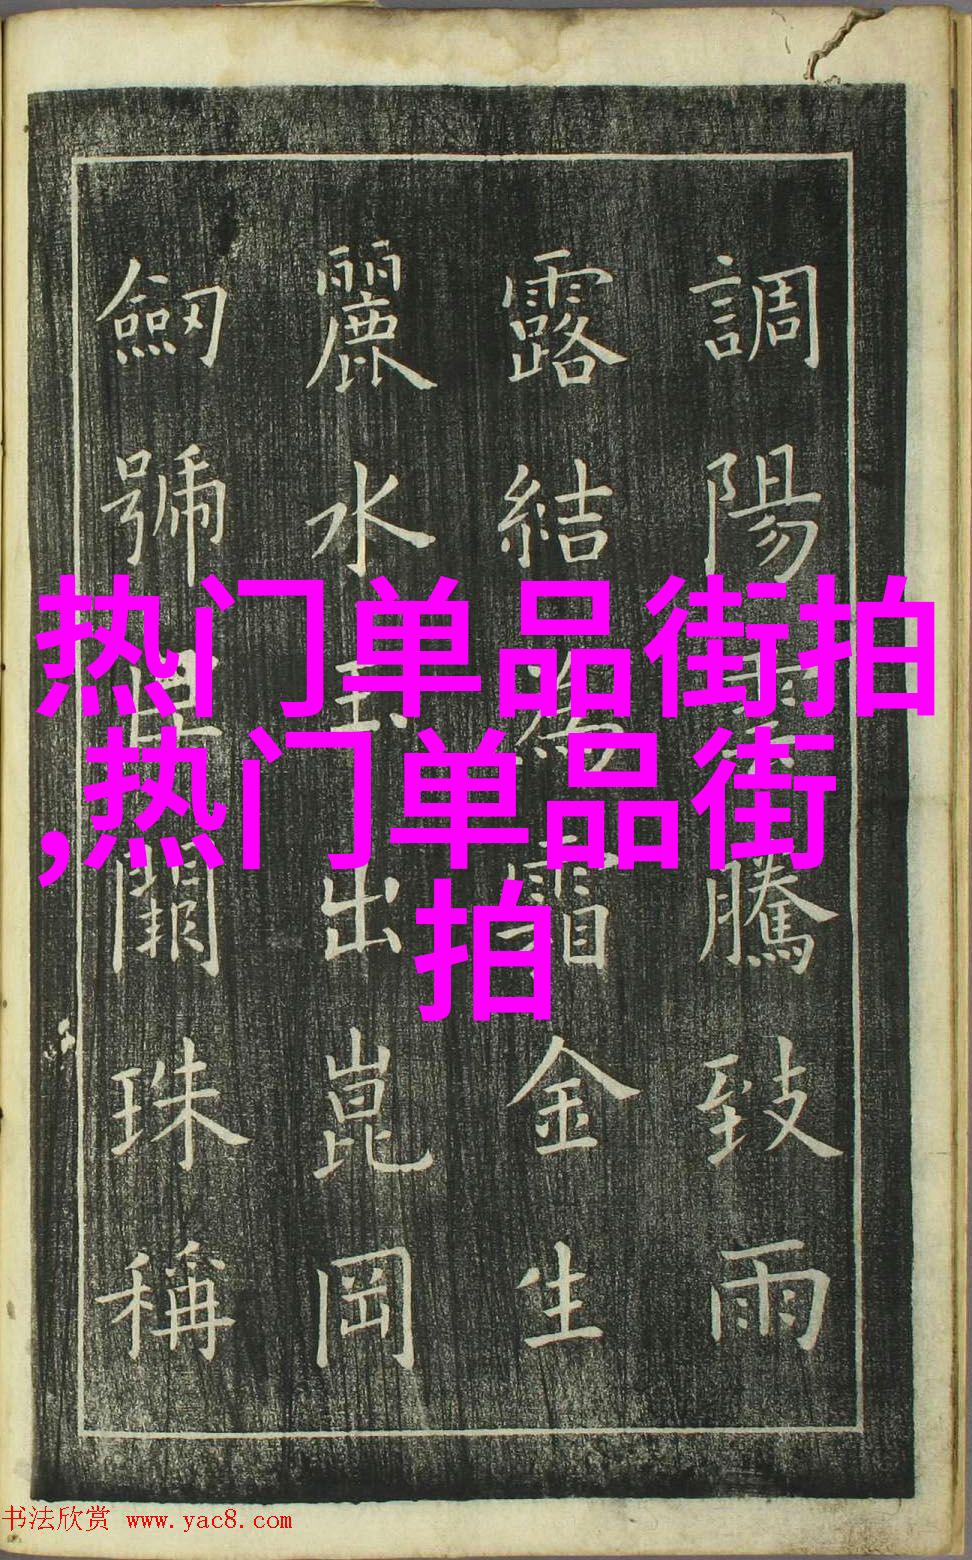 調陽雲騰致雨
露結為霜金生
麗水玉出崑岡
劒號巨闕珠稱
热门单品街拍
,热门单品街
拍
书法欣赏 www.yac8.com